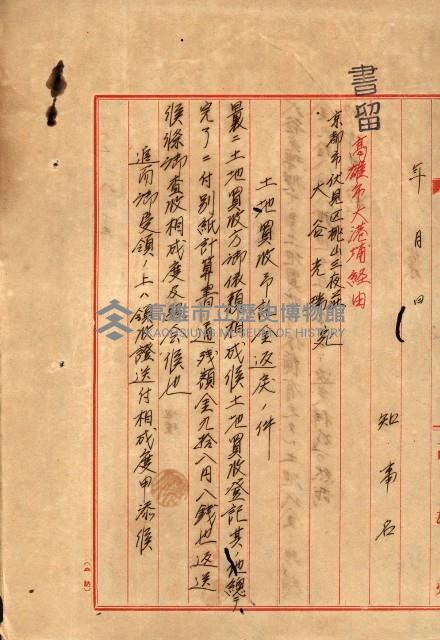 書留
年 月 日
知事名
高雄市大港埔経由
京都市伏見区桃山三夜荘
大谷光瑞宛
土地買収予約金返戻ノ件
曩ニ土地買収方御依頼相成候土地買収登記其ノ他総テ
完了ニ付別紙計算書ノ通残額金九拾八円八銭也返送
候條御査収相成度及 候也
追而御受領ノ上ハ領収證送付相成度申添候
高雄市立歷史博物館
KAOHSIUNG MUSEUM OF HISTORY